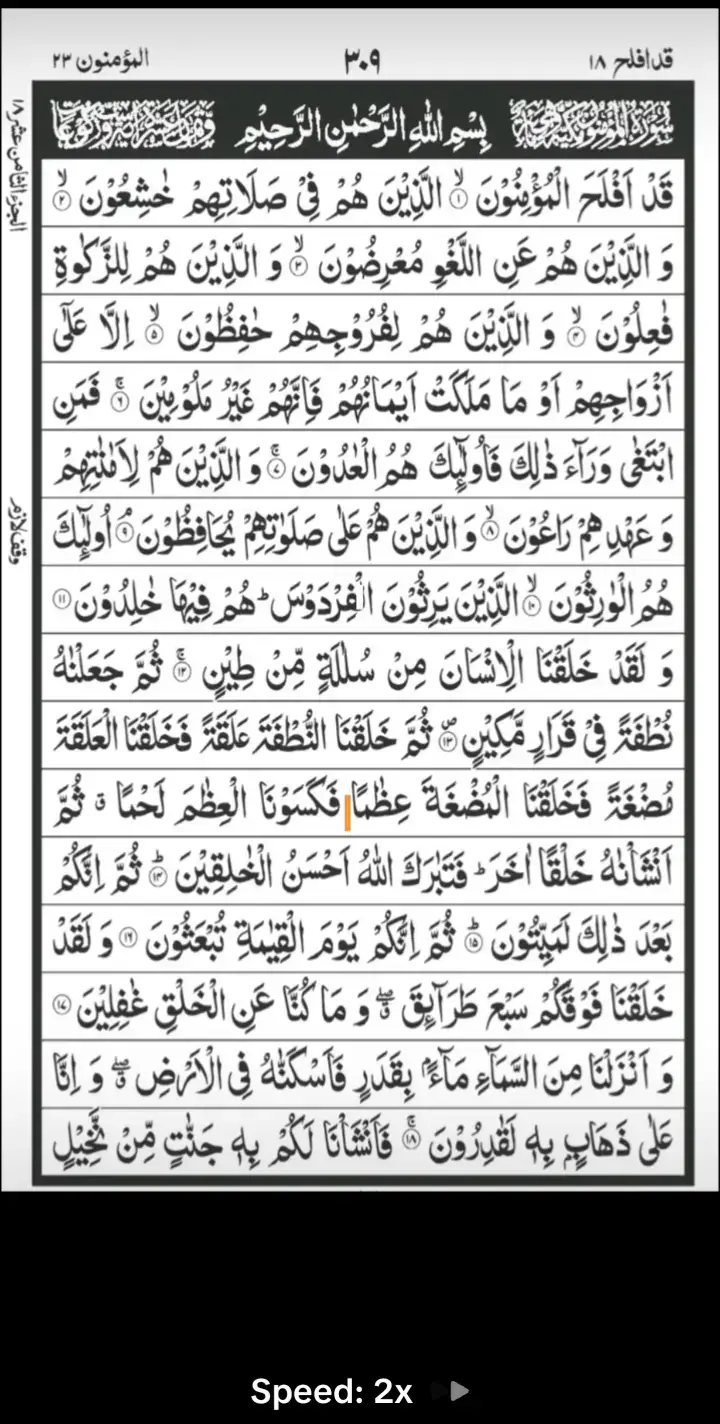 قد افلح ١٨
٣٠٩
المؤمنون ٢٣
بِسْمِ اللّٰهِ الرَّحْمٰنِ الرَّحِيْمِ
قَدْ اَفْلَحَ الْمُؤْمِنُوْنَ ۙ﴿۱﴾ الَّذِيْنَ هُمْ فِيْ صَلَاتِهِمْ خٰشِعُوْنَ ۙ﴿۲﴾
وَ الَّذِيْنَ هُمْ عَنِ اللَّغْوِ مُعْرِضُوْنَ ۙ﴿۳﴾ وَ الَّذِيْنَ هُمْ لِلزَّكٰوةِ
فٰعِلُوْنَ ۙ﴿۴﴾ وَ الَّذِيْنَ هُمْ لِفُرُوْجِهِمْ حٰفِظُوْنَ ۙ﴿۵﴾ اِلَّا عَلٰٓى
اَزْوَاجِهِمْ اَوْ مَا مَلَكَتْ اَيْمَانُهُمْ فَاِنَّهُمْ غَيْرُ مَلُوْمِيْنَ ۚ﴿۶﴾ فَمَنِ
ابْتَغٰى وَرَآءَ ذٰلِكَ فَاُولٰٓئِكَ هُمُ الْعٰدُوْنَ ۚ﴿۷﴾ وَ الَّذِيْنَ هُمْ لِاَمٰنٰتِهِمْ
وَ عَهْدِهِمْ رَاعُوْنَ ۙ﴿۸﴾ وَ الَّذِيْنَ هُمْ عَلٰى صَلَوٰتِهِمْ يُحَافِظُوْنَ ۘ﴿۹﴾ اُولٰٓئِكَ
هُمُ الْوٰرِثُوْنَ ۙ﴿۱۰﴾ الَّذِيْنَ يَرِثُوْنَ الْفِرْدَوْسَ ؕ هُمْ فِيْهَا خٰلِدُوْنَ ﴿۱۱﴾
وَ لَقَدْ خَلَقْنَا الْاِنْسَانَ مِنْ سُلٰلَةٍ مِّنْ طِيْنٍ ۚ﴿۱۲﴾ ثُمَّ جَعَلْنٰهُ
نُطْفَةً فِيْ قَرَارٍ مَّكِيْنٍ ۪﴿۱۳﴾ ثُمَّ خَلَقْنَا النُّطْفَةَ عَلَقَةً فَخَلَقْنَا الْعَلَقَةَ
مُضْغَةً فَخَلَقْنَا الْمُضْغَةَ عِظٰمًا فَكَسَوْنَا الْعِظٰمَ لَحْمًا ٭ ثُمَّ
اَنْشَاْنٰهُ خَلْقًا اٰخَرَ ؕ فَتَبٰرَكَ اللّٰهُ اَحْسَنُ الْخٰلِقِيْنَ ؕ﴿۱۴﴾ ثُمَّ اِنَّكُمْ
بَعْدَ ذٰلِكَ لَمَيِّتُوْنَ ؕ﴿۱۵﴾ ثُمَّ اِنَّكُمْ يَوْمَ الْقِيٰمَةِ تُبْعَثُوْنَ ﴿۱۶﴾ وَ لَقَدْ
خَلَقْنَا فَوْقَكُمْ سَبْعَ طَرَآئِقَ ۖ وَ مَا كُنَّا عَنِ الْخَلْقِ غٰفِلِيْنَ ﴿۱۷﴾
وَ اَنْزَلْنَا مِنَ السَّمَآءِ مَآءًۢ بِقَدَرٍ فَاَسْكَنّٰهُ فِي الْاَرْضِ ۖ وَ اِنَّا
عَلٰى ذَهَابٍۭ بِهٖ لَقٰدِرُوْنَ ۚ﴿۱۸﴾ فَاَنْشَاْنَا لَكُمْ بِهٖ جَنّٰتٍ مِّنْ نَّخِيْلٍ
الجزء الثامن عشر ١٨
وقف لازم
Speed: 2x